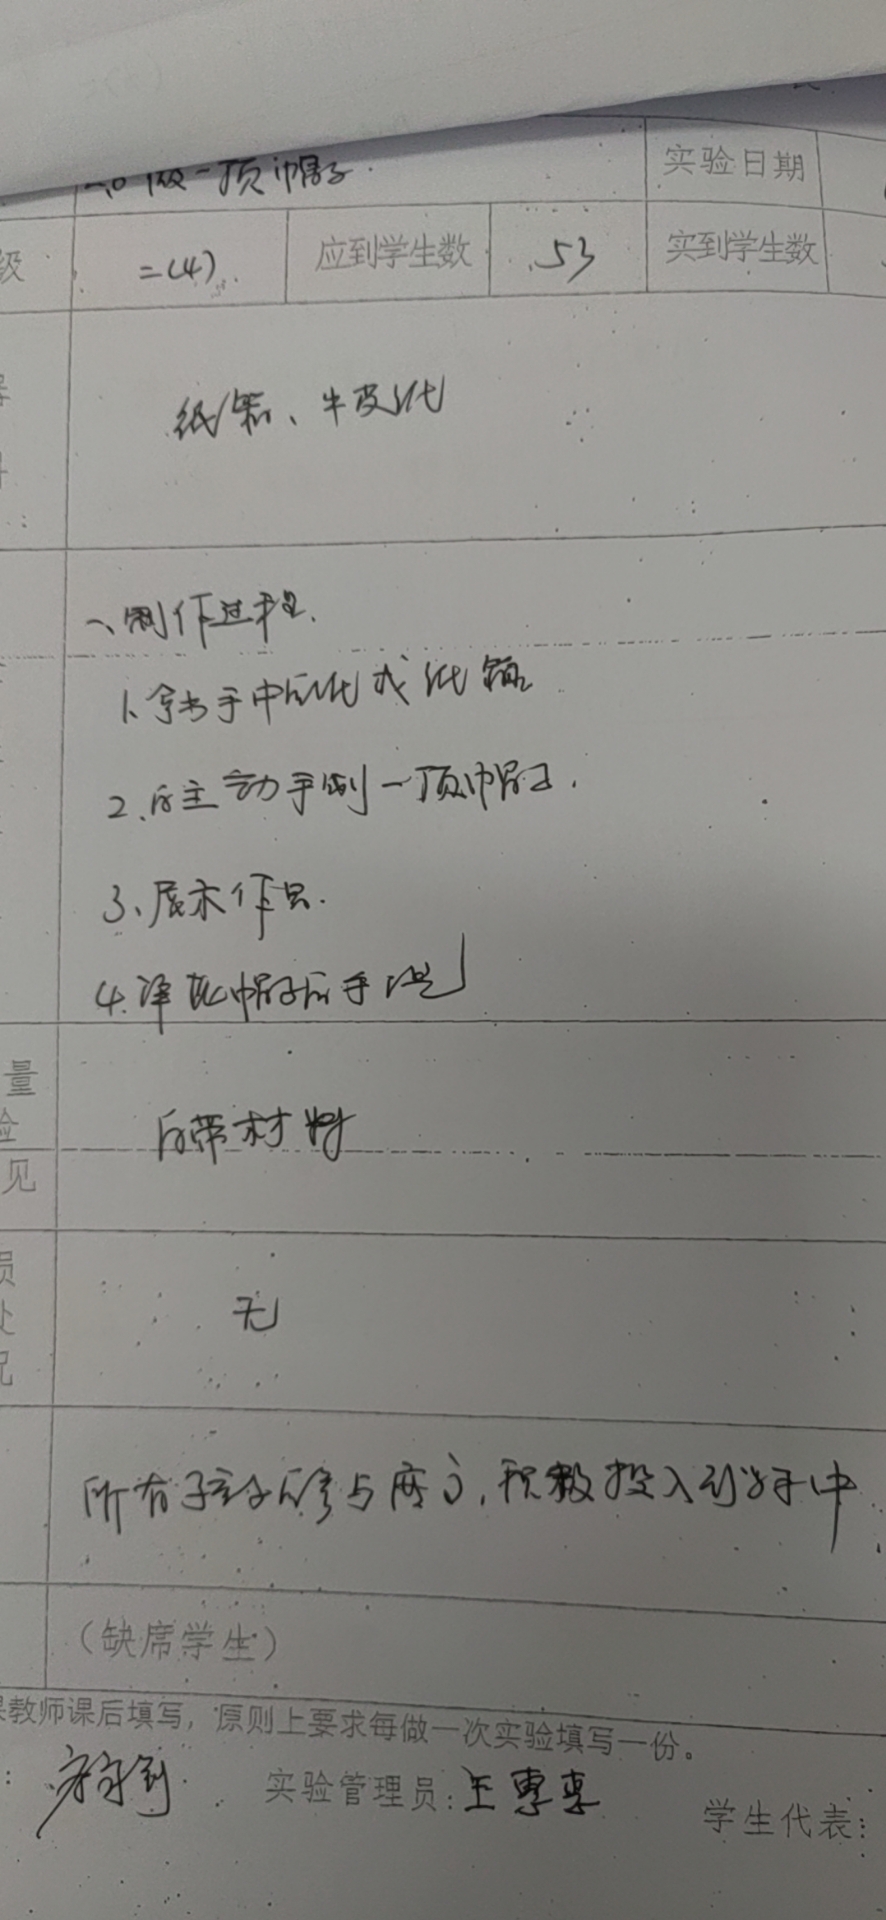 做一顶帽子
实验日期
级
二(4)
应到学生数
53
实到学生数
纸箱、牛皮纸
一、制作过程.
1、拿出手中的纸或纸箱
2、自主动手制一顶帽子.
3、展示作品.
4.评比帽子
量
见
自带材料
员
处
况
无
所有孩子参与度高,积极投入到
中
(缺席学生)
课教师课后填写,原则上要求每做一次实验填写一份。
实验管理员:王
学生代表: